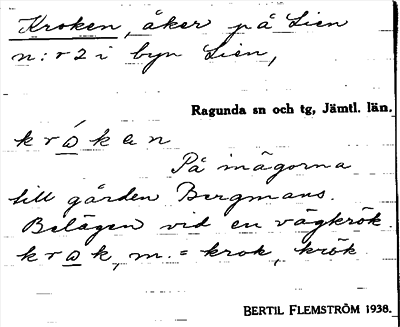 Kroken, åker på Lien
n:r 2 i byn Lien,
Ragunda sn och tg, Jämtl. län.
k r ó̲ k e n
På inägorna
till gården Bergmans.
Belägen vid en vägkrök.
k r o̲ k, m. = krok, krök.
BERTIL FLEMSTRÖM 1938.